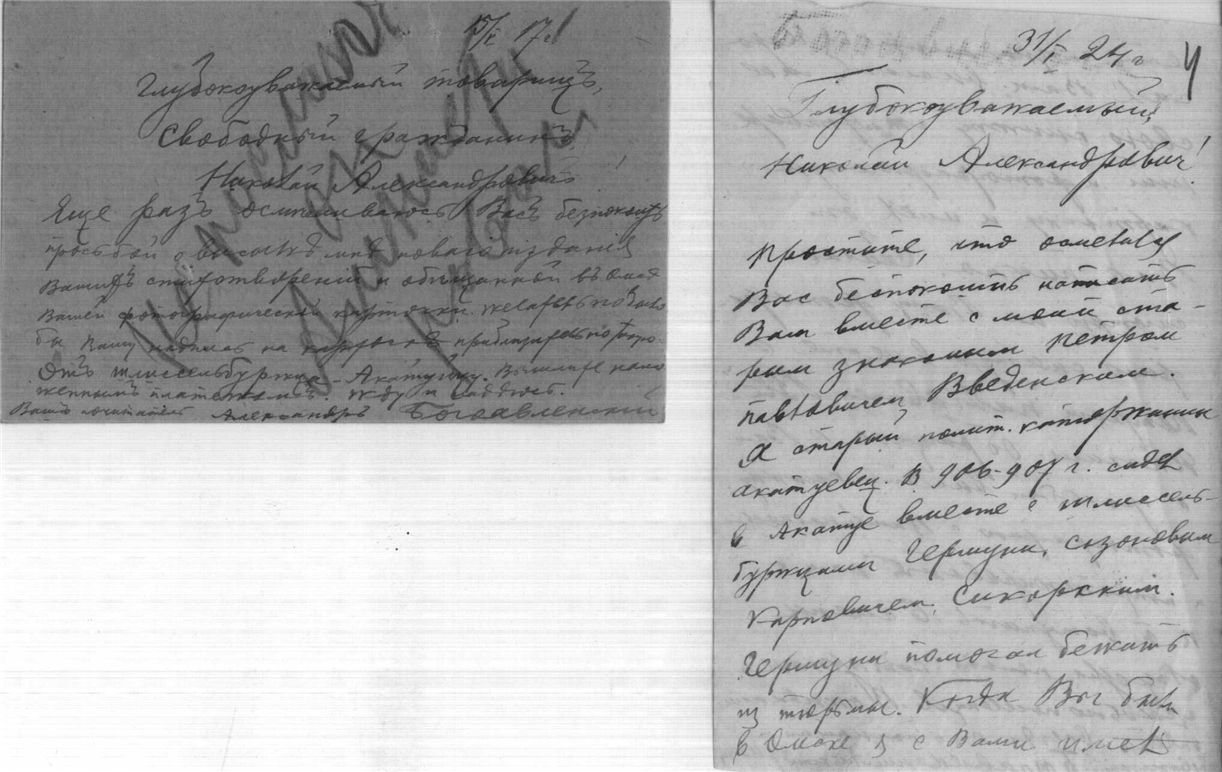 17 г.
Глубокоуважаемый товарищъ,
Свободный гражданинъ
Николай Александровичъ!
Еще разъ осмеливаюсь Васъ безпокоить
просьбой о высылке мне новаго изданiя
Вашихъ стихотворенiй и обещанной въ Омске
Вашей фотографической карточки. желательно было
бы Вашу надпись на карточке
Отъ шлиссельбуржца – Акатуйцу. Вышлите нало
женнымъ платежомъ. Жду и надеюсь.
Вашъ Александръ Богоявленскiй
4
31/I 24 г
Глубокоуважаемый
Николай Александрович!
Простите, что осмелился
Вас беспокоить написать
Вам вместе с моим ста-
рым знакомым Петром
Павловичем Введенским.
Я старый полит. каторжанин
акатуевец. В 906-907 г. сидел
в Акатуе вместе с шлиссель-
буржцами Гершуни, Сазоновым
Карповичем, Сикорским.
Гершуни помогал бежать
из тюрьмы. Когда Вы были
в Омске я с Вами имел